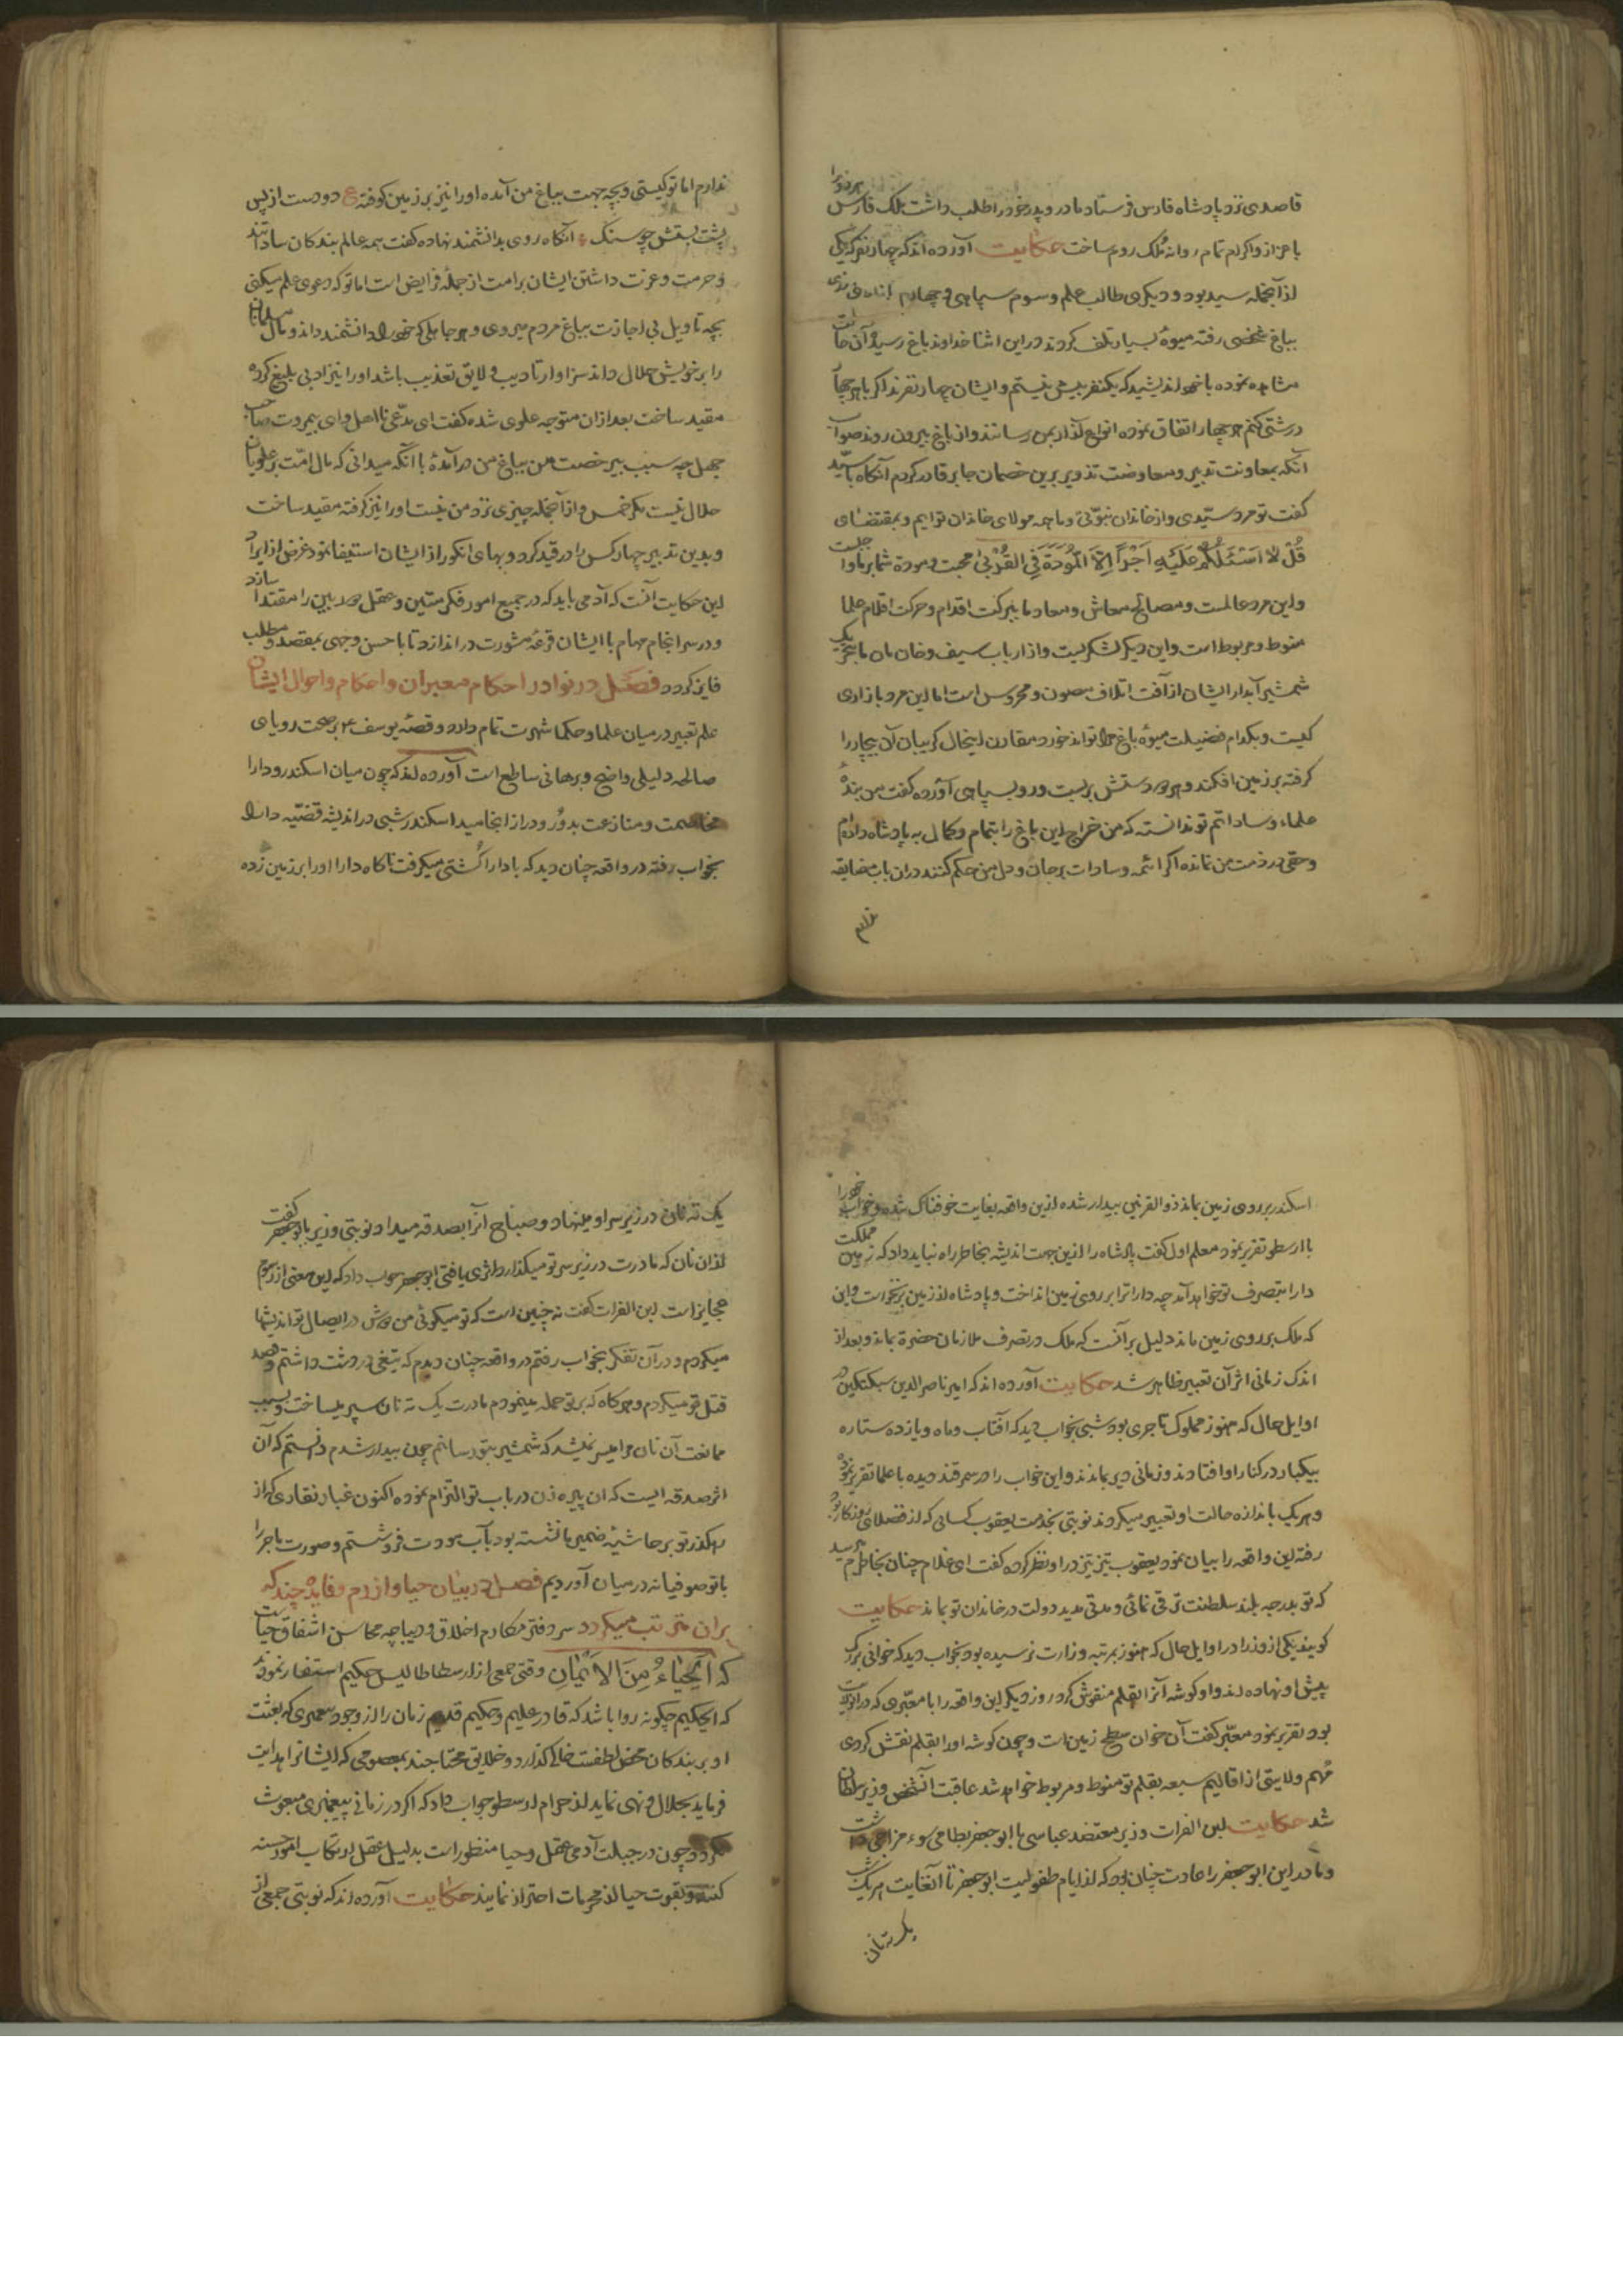 قاصدی نزد پادشاه فارس فرستاد مادر و پدر خود را طلب داشت ملک فارس هر دو را
باعزاز و اکرام تمام روانه ملک روم ساخت حکایت آورده اند که چهار نفر که یکی
از آنجمله سید بود و دیگری طالب علم و سوم سپاهی و چهارم
بباغ شخصی رفته میوهٔ بسیار تلف کردند در این اثنا خداوند باغ رسید و آن حالت
مشاهده نموده با خود اندیشید که یکنفر بیش نیستم و ایشان چهار نفرند اگر با هر چهار
درشتی کنم هر چهار اتفاق نموده انواع آزار بمن رسانند و از باغ بیرون روند صواب
آنکه بمعاونت تدبیر و معاضدت تزویر برین خصمان جابر قادر گردم آنگاه با سید
گفت تو مرد سیدی و از خاندان نبوتی و ما همه مولای خاندان توایم و بمقتضای
قُلْ لا اَسْئَلُكُمْ عَلَيْهِ اَجْراً اِلَّا الْمَوَدَّةَ فِي الْقُرْبٰى محبت و مودة شما بر ما واجبست
و این مرد عالمست و مصالح معاش و معاد ما ببرکت اقدام و حرکت اقلام علما
منوط و مربوط است و این دیگر لشکریست و از ارباب سیف و خان مان ما بتحریک
شمشیر آبدار ایشان از آفت اتلاف مصون و محروس است اما این مرد بازاری
کیست و بکدام فضیلت میوهٔ باغ مرا تواند خورد مقارن اینحال گریبان آن بیچاره را
گرفته بر زمین افکند و هر دو دستش بر بست و رو بسپاهی آورده گفت من بندهٔ
علماء و ساداتم تو ندانسته که من خراج این باغ را بتمام و کمال به پادشاه داده‌ام
و حقی در ذمت من نمانده اگر ائمه و سادات بر جان و دل من حکم کنند در آن باب مضایقه
ندارم
ندارم اما تو کیستی و بچه جهت بباغ من آمده او را نیز بر زمین کوفته ع دو دست از پس
پشت بستش چو سنگ آنگاه روی بدانشمند نهاده گفت همه عالم بندگان ساداتند
و حرمت و عزت داشتن ایشان بر امت از جملهٔ فرایض است اما تو که دعوی علم میکنی
بچه تاویل بی اجازت بباغ مردم میروی و هر جاهلی که خود را دانشمند داند و مال مسلمانان
را بر خویش حلال داند سزاوار تادیب و لایق تعذیب باشد او را نیز ادبی بلیغ کرده
مقید ساخت بعد از آن متوجه علوی شده گفت ای مدعی نااهل و ای بیمروت صاحب
جهل چه سبب بی رخصت من بباغ من در آمدهٔ با آنکه میدانی که مال امت بر علویان
حلال نیست مگر خمس و از آنجمله چیزی نزد من نیست او را نیز گرفته مقید ساخت
و بدین تدبیر چهار کس را در قید کرد و بهای انگور از ایشان استیفا نمود غرض از ایراد
این حکایت آنست که آدمی باید که در جمیع امور فکر متین و عقل دور بین را مقتدا سازد
و در سرانجام مهام با ایشان قرعهٔ مشورت در اندازد تا باحسن وجهی بمقصد و مطلب
فایز گردد فصل در نوادر احکام معبران و احکام و احوال ایشان
علم تعبیر در میان علما و حکما شهرت تمام دارد و قصهٔ یوسف ع بر صحت رویای
صالحه دلیلی واضح و برهانی ساطع است آورده اند که چون میان اسکندر و دارا
مخاصمت و منازعت بدور و دراز انجامید اسکندر شبی در اندیشه قضیّه دارا
بخواب رفته در واقعه چنان دید که با دارا کشتی میگرفت ناگاه دارا او را بر زمین زده
اسکندر بر روی زمین بماند ذو القرنین بیدار شده ازین واقعه بغایت خوفناک شده و خواب خود را
با ارسطو تقریر نمود معلم اول گفت پادشاه را ازین جهت اندیشه بخاطر راه نباید داد که زمین مملکت
دارا بتصرف تو خواهد آمد چه دارا ترا بر روی زمین انداخت و پادشاه از زمین برنخواست و این
که ملک بر روی زمین ماند دلیل بر آنست که ملک در تصرف ملازمان حضرة بماند و بعد از
اندک زمانی اثر آن تعبیر ظاهر شد حکایت آورده اند که امیر ناصر الدین سبکتکین در
اوایل حال که هنوز مملوک تاجری بود شبی بخواب دید که آفتاب و ماه و یازده ستاره
بیکبار در کنار او افتادند و زمانی دیر بماندند و این خواب را در سمرقند دیده با علما تقریر نمود
و هر یک باندازه حالت او تعبیر میکردند نوبتی بخدمت یعقوب کسائی که از فضلای روزگار بود
رفته این واقعه را بیان نمود یعقوب تیز تیز در او نظر کرده گفت ای غلام چنان بخاطرم میرسد
که تو بدرجه بلند سلطنت ترقی نمائی و مدتی مدید دولت در خاندان تو بماند حکایت
گویند یکی از وزرا در اوایل حال که هنوز بمرتبه وزارت نرسیده بود بخواب دید که خوانی بزرگ
پیش او نهاده اند و او گوشه آنرا بقلم منقوش کرد روز دیگر این واقعه را با معبّری که در آن ولایت
بود تقریر نمود معبّر گفت آن خوان سطح زمین است و چون گوشه او را بقلم نقش کردی
مهم ولایتی از اقالیم سبعه بقلم تو منوط و مربوط خواهد شد عاقبت آنشخص وزیر سلطان
شد حکایت ابن الفرات وزیر معتضد عباسی با ابو جعفر بسطامی سوء مزاجی داشت
و مادر این ابو جعفر را عادت چنان بود که از ایام طفولیت ابو جعفر تا آنغایت هر یک شب
یک ته نان
یک ته نان در زیر سر او مینهاد و صباح آنرا بصدقه میداد نوبتی وزیر با ابو جعفر گفت
از آن نان که مادرت در زیر سر تو میگذارد اثری یافتی ابو جعفر جواب داد که این معنی از رسوم
عجایز است ابن الفرات گفت نه چنین است که تو میگوئی من دوش در ایصال تو اندیشها
میکردم و در آن تفکر بخواب رفتم در واقعه چنان دیدم که تیغی در دست داشتم و قصد
قتل تو میکردم و هر گاه که بر تو حمله مینمودم مادرت یک ته نان سپر میساخت و بسبب
ممانعت آن نان مرا میسر نمیشد که شمشیر بتو رسانم چون بیدار شدم دانستم که آن
اثر صدقه ایست که آن پیره زن در باب تو التزام نموده اکنون غبار نقاری که از
رهگذر تو بر حاشیهٔ ضمیر ما نشسته بود بآب مودت فرو شستم و صورت ماجرا
با تو صوفیانه در میان آوردیم فصل در بیان حیا و ازرم و فایده چند که
بر آن مترتب میگردد سر دفتر مکارم اخلاق و دیباچه محاسن اشفاق حیاست
که اَلْحَيَاءُ مِنَ الاِيْمَانِ وقتی جمعی از ارسطاطالیس حکیم استفسار نمودند
که ایحکیم چگونه روا باشد که قادر علیم و حکیم قدیم زمان را از وجود پیغمبری که بعثت
او بر بندگان محض لطفست خالی گذارد و خلایق محتاجند بمعصومی که ایشانرا هدایت
فرماید بحلال و نهی نماید از حرام ارسطو جواب داد که اگر در زمانی پیغمبری مبعوث
نگردد چون در جبلت آدمی عقل و حیا منظور است بدلیل عقل ارتکاب امور حسنه
کنند و بقوت حیا از محرمات احتراز نمایند حکایت آورده اند که نوبتی جمعی از